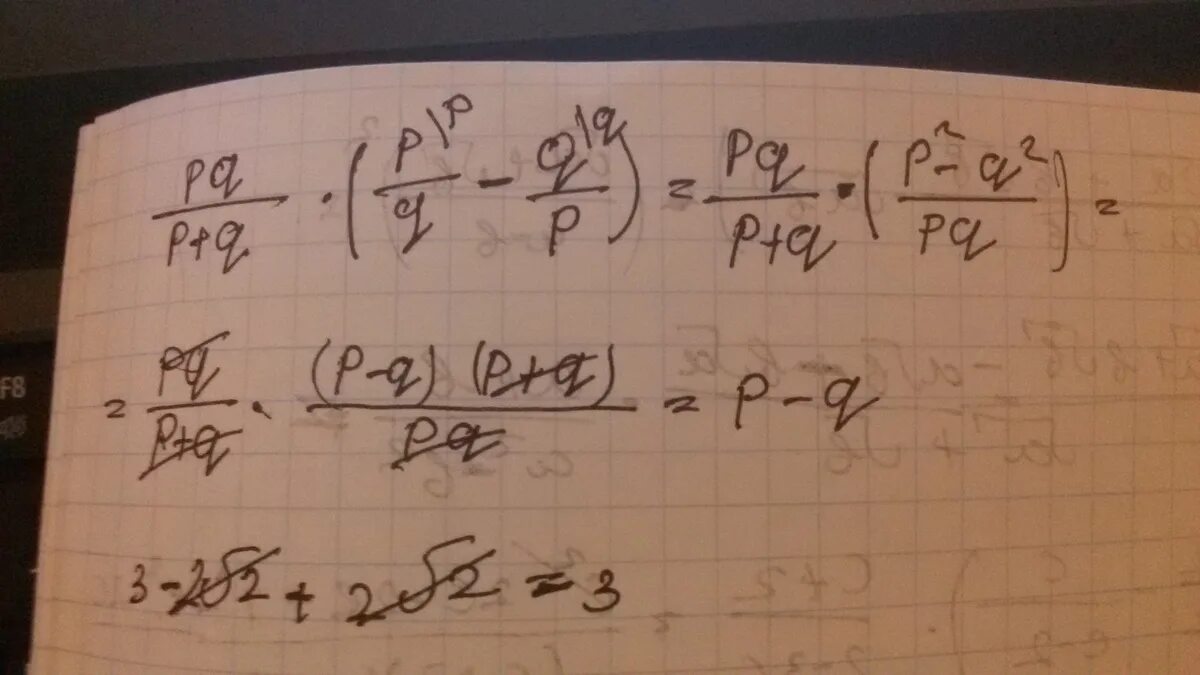 pq/(p+q) · (p\p/q − q\q/p) = pq/(p+q) · ((p² − q²)/pq) =
= pq/(p+q) · (p−q)(p+q)/pq = p − q
3 − 2√2 + 2√2 = 3
F8